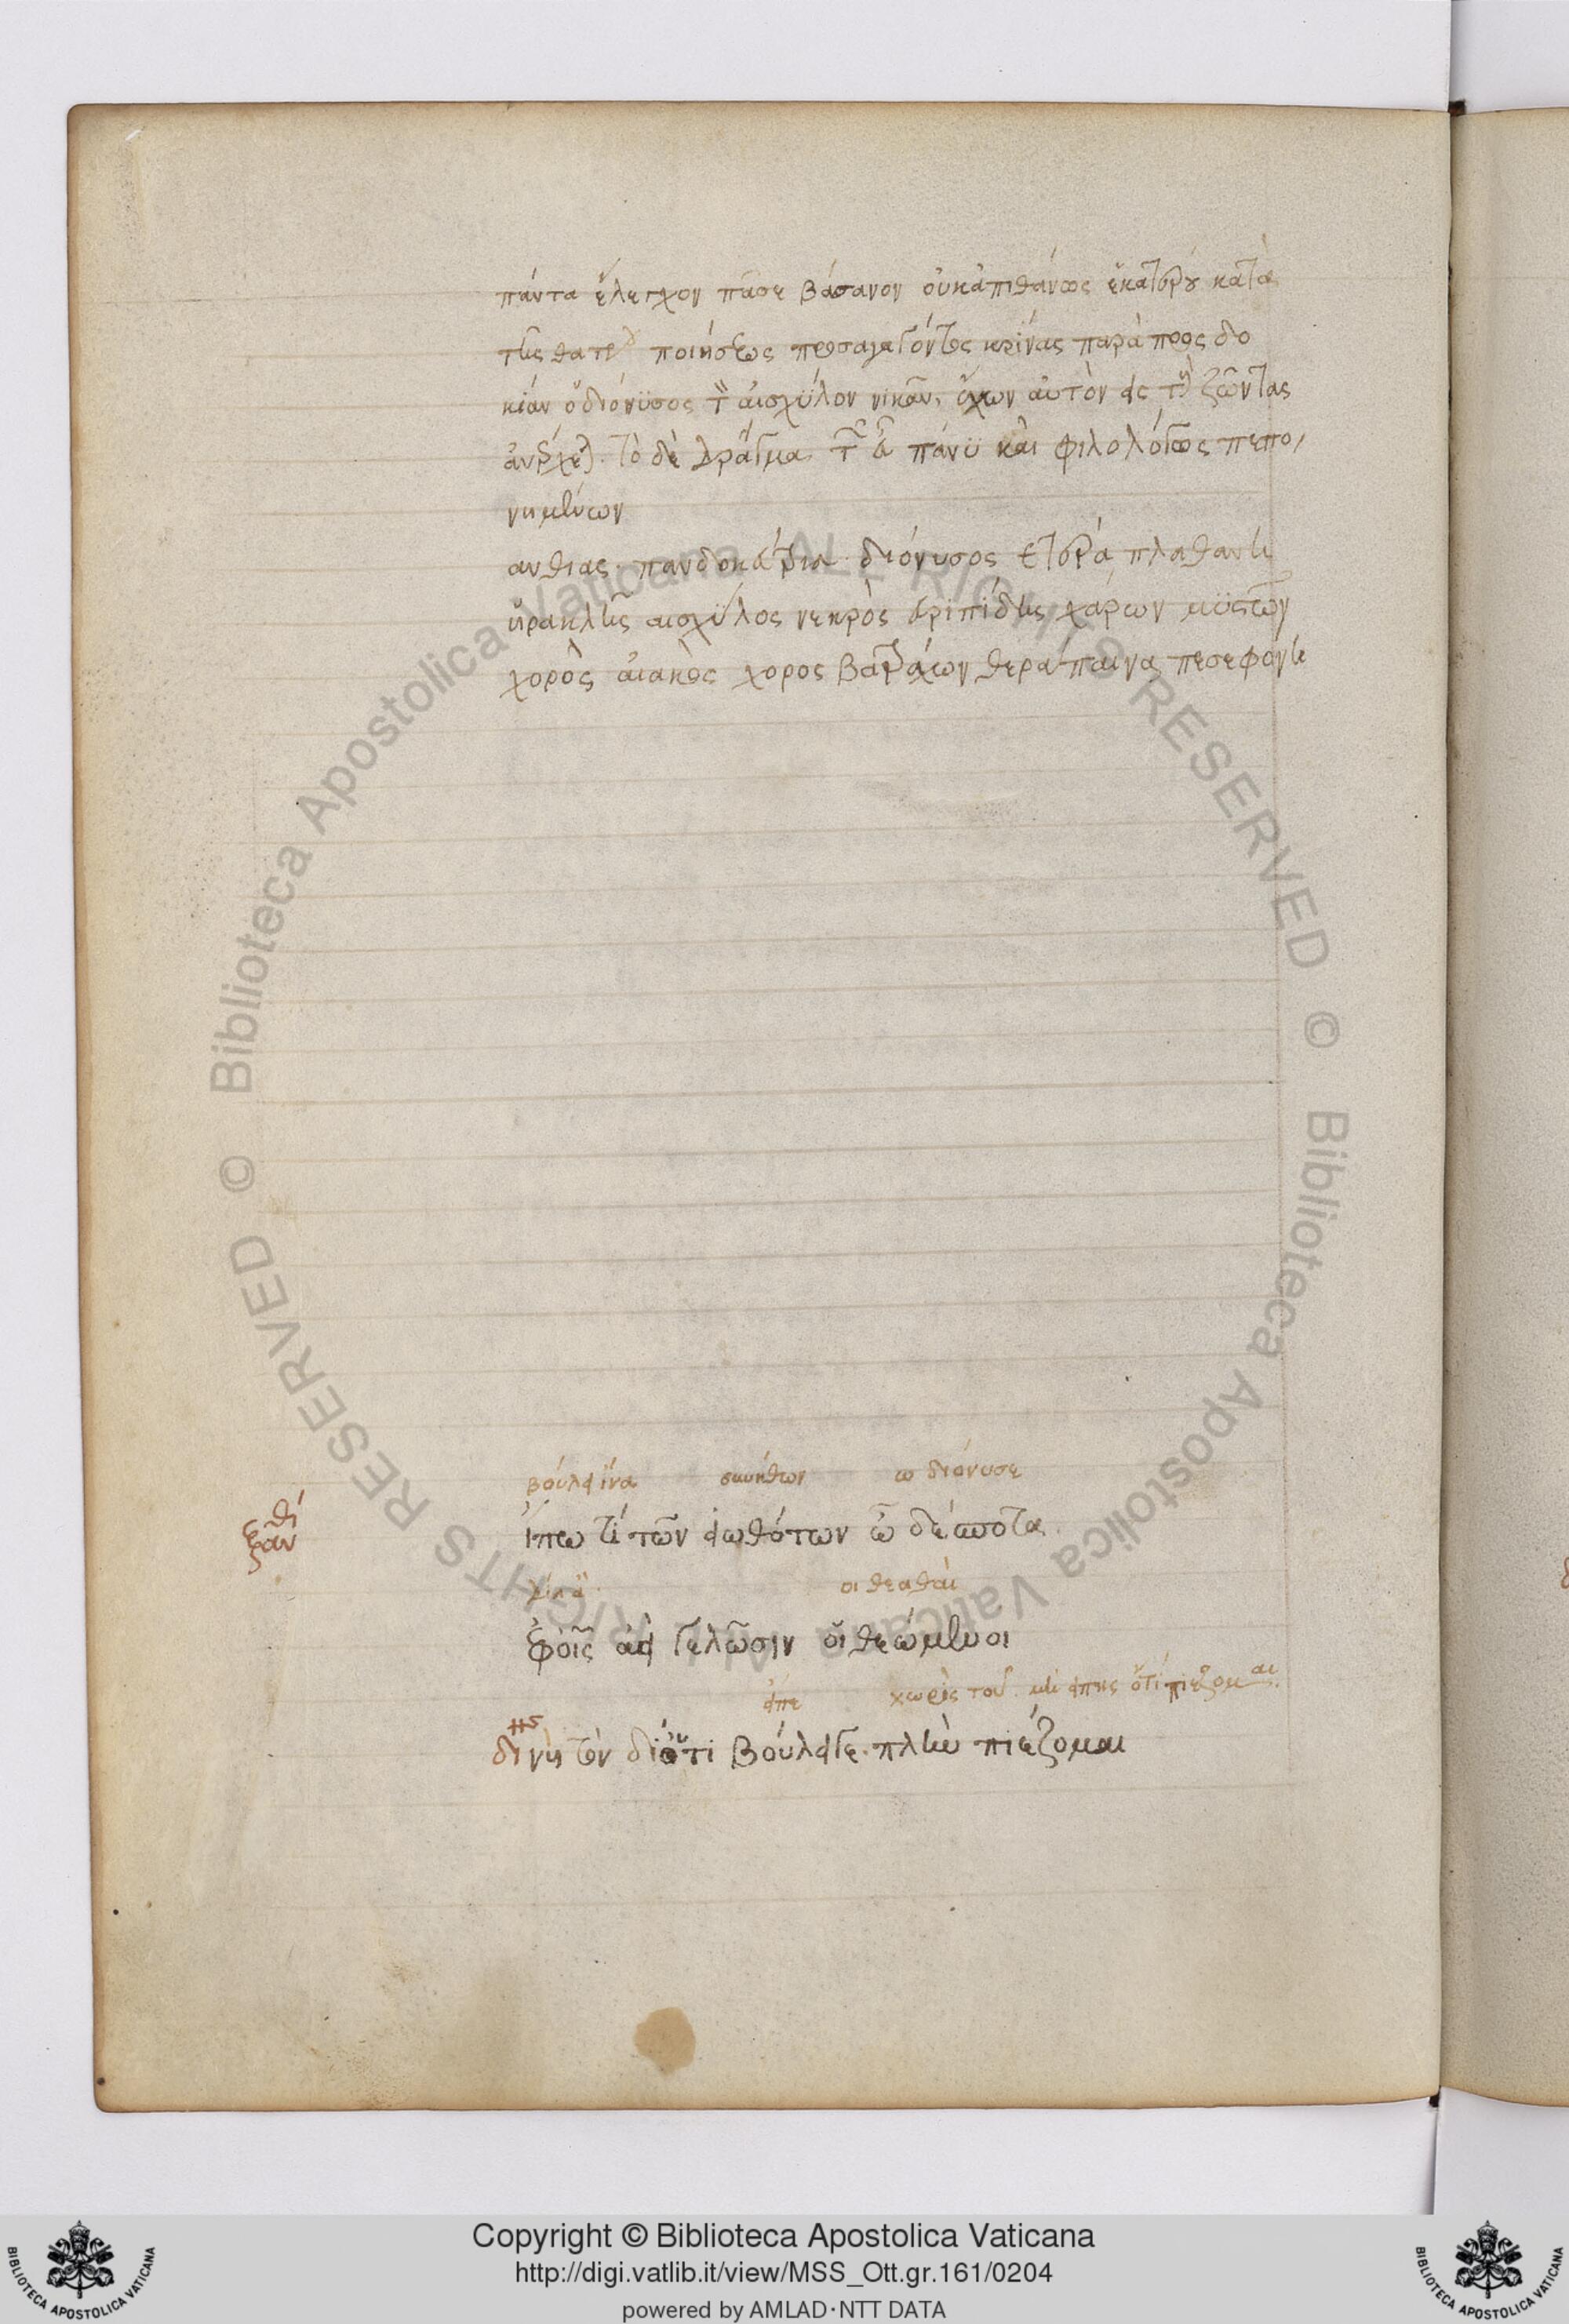 πάντα ἔλεγχον πᾶσε βάσανον οὐκ ἀπιθάνως ἑκατέρου κατὰ
τῆς θατέρ ποιήσεως προσαγαγόντος κρίνας παρὰ προς δο
κίαν ὁ διόνϋσος τ αἰσχϋλον νικᾶν, ἔχων αὐτὸν εἰς τ ζῶντας
ἀνέρχε). Τὸ δὲ δρᾶγμα τ ε πάνϋ καὶ φιλολόγως πεπο,
νημένων
ανθιας· πανδοκεύτρια διόνυσος ἑτέρα πλαθανη
ἡρακλῆς αισχϋλος νεκρὸς εὐριπίδης χάρων μϋστῶν
χορὸς αἰακὸς χορος βατράχων θεράπαινα πεσεφονη
βούλει ἵνα συνήθων ω διόνυσε
ξανθί
εἴπω τί τῶν εἰωθότων ὦ δέσποτα
οι θεαθαὶ
ἐφ οἷς αεὶ γελῶσιν οἱ θεώμενοι
εἰπε χωρὶς τοῦ μὴ εἴπης ὅτι πιέζομαι
δι νὴ τὸν δί ὅτι βούλει γε· πλὴν πιέζομαι
Copyright © Biblioteca Apostolica Vaticana
http://digi.vatlib.it/view/MSS_Ott.gr.161/0204
powered by AMLAD·NTT DATA
BIBLIOTECA APOSTOLICA VATICANA
BIBLIOTECA APOSTOLICA VATICANA
© Biblioteca Apostolica Vaticana ALL RIGHTS RESERVED © Biblioteca Apostolica Vaticana ALL RIGHTS RESERVED